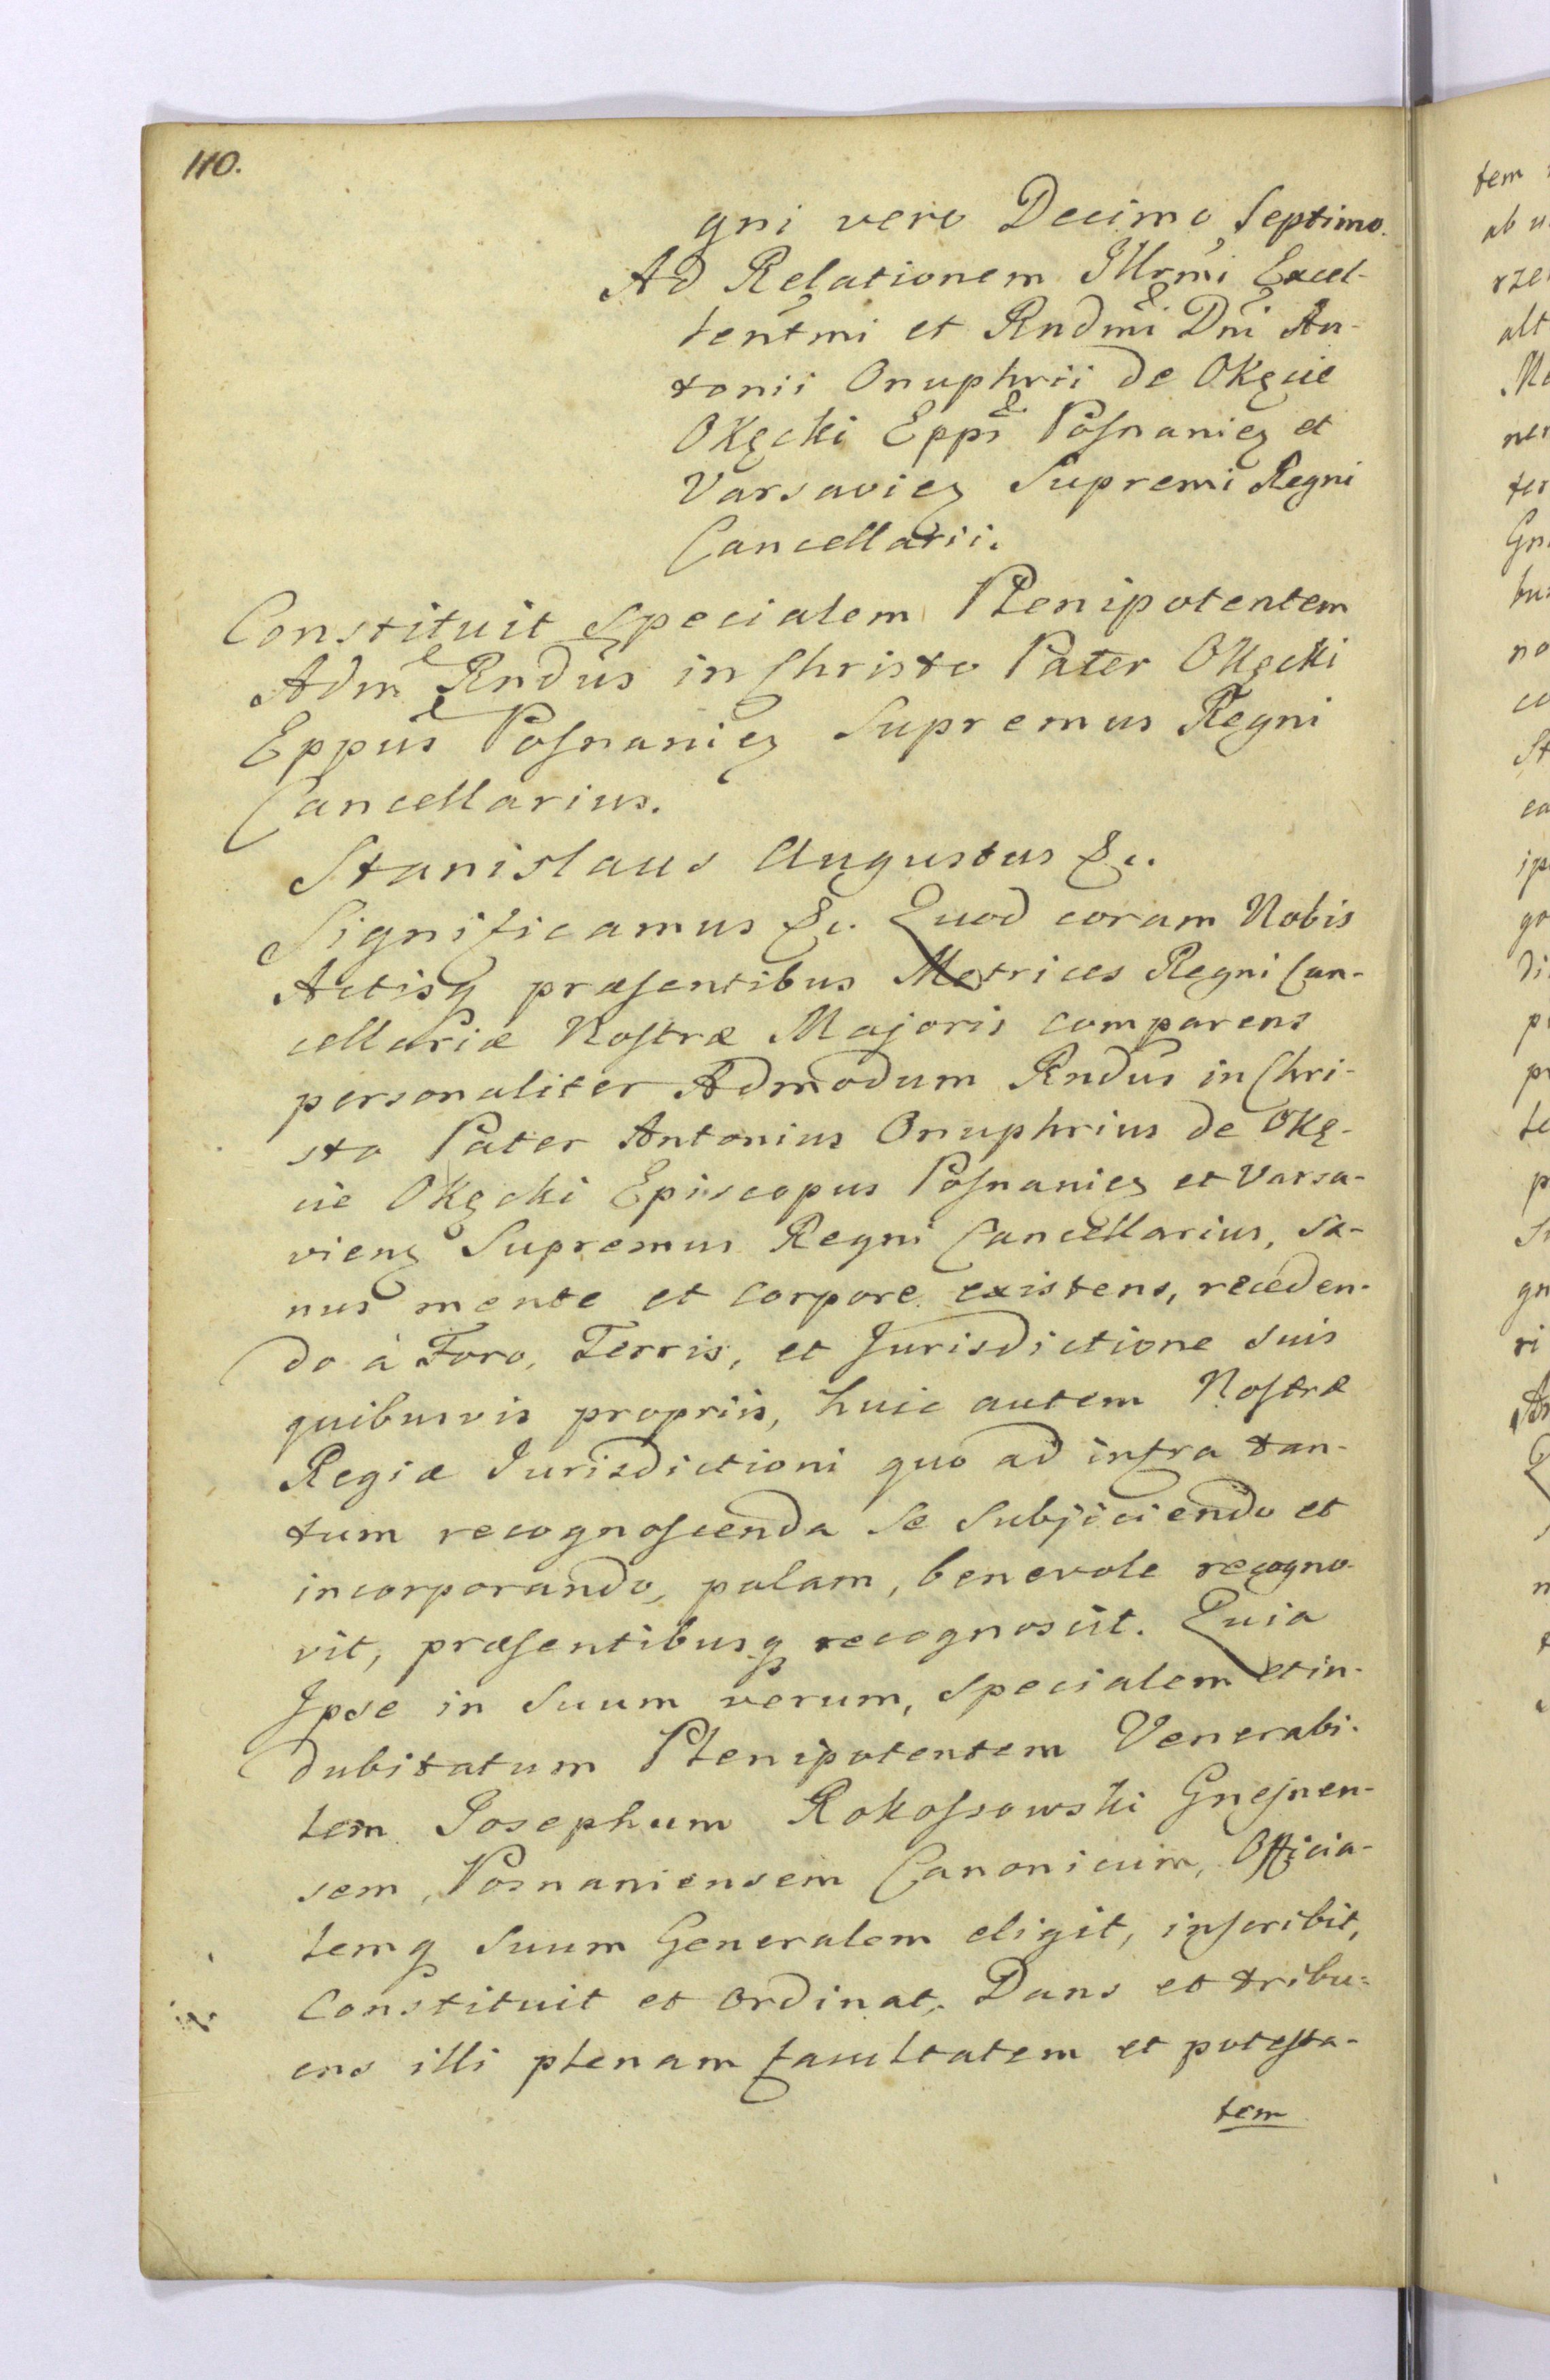 110.
gni vero Decimo Septimo.
Ad Relationem Illrmi Excel-
lentmi et Rndmi Dni An-
tonii Onuphrii de Okęcie
Okęcki Eppi Posnanien et
Varsavien Supremi Regni
Cancellarii.
Constituit Specialem Plenipotentem
Adm Rndus in Christo Pater Okęcki
Eppus Posnanien Supremus Regni
Cancellarius.
Stanislaus Augustus &c.
Significamus &c. Quod coram Nobis
Actisq præsentibus Metrices Regni Can-
cellariæ Nostræ Majoris comparens
personaliter Admodum Rndus in Chri-
sto Pater Antonius Onuphrius de Okę-
cie Okęcki Episcopus Posnanien et Varsa-
vien Supremus Regni Cancellarius, sa-
nus mente et corpore existens, receden-
do à Foro, Terris, et Jurisdictione suis
quibusvis propriis, huic autem Nostræ
Regiæ Jurisdictioni quo ad infra tan-
tum recognoscenda se subjiciendo et
incorporando, palam, benevole recogno-
vit, præsentibusq recognoscit. Quia
Ipse in suum verum, specialem et in-
dubitatum Plenipotentem Venerabi-
lem Josephum Rokossowski Gnesnen-
sem, Posnaniensem Canonicum, Officia-
lemq suum Generalem eligit, inscribit,
Constituit et ordinat, Dans et tribu-
ens illi plenam facultatem et potesta-
tem